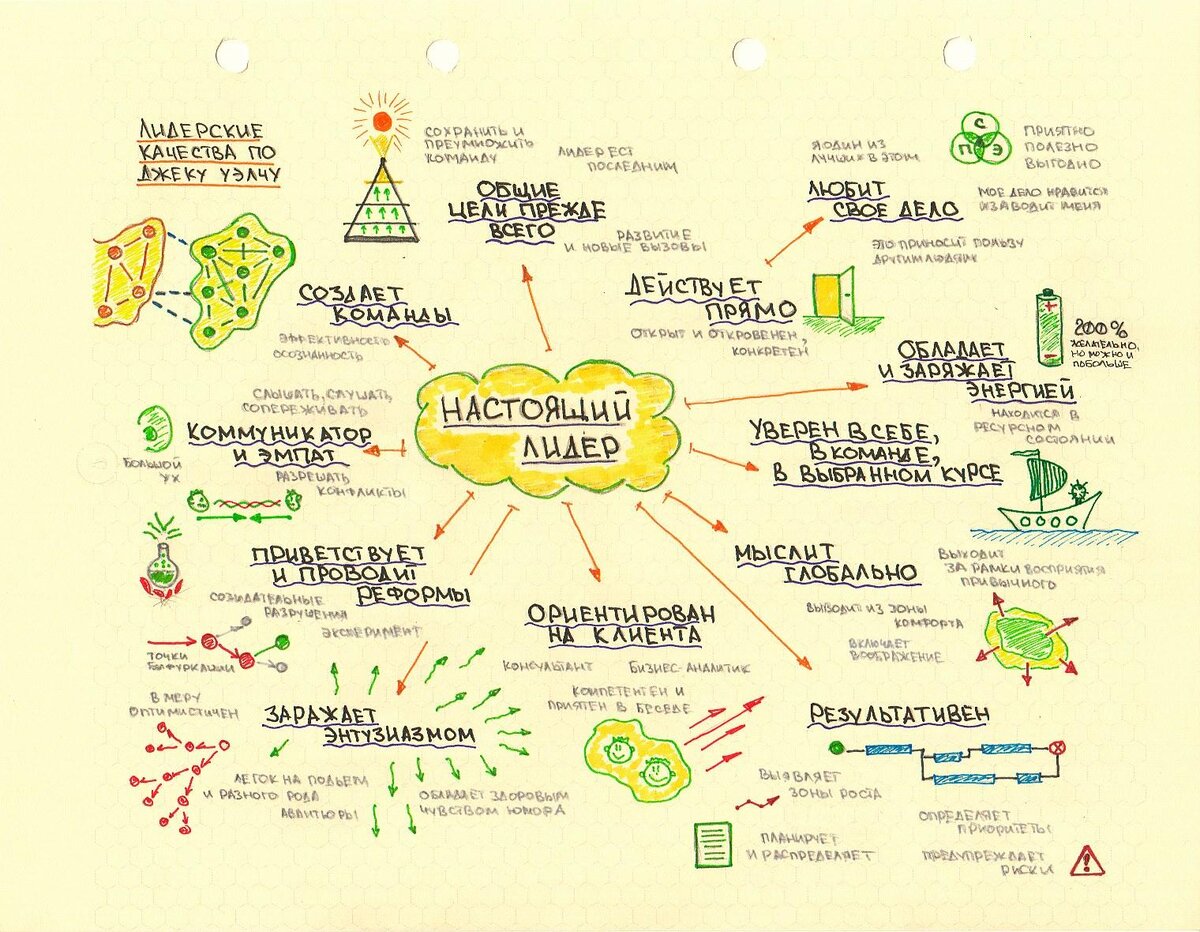 ЛИДЕРСКИЕ
КАЧЕСТВА ПО
ДЖЕКУ УЭЛЧУ
СОХРАНИТЬ И
ПРЕУМНОЖИТЬ
КОМАНДУ
ЛИДЕР ЕСТ
ПОСЛЕДНИМ
ОБЩИЕ
ЦЕЛИ ПРЕЖДЕ
ВСЕГО
РАЗВИТИЕ
И НОВЫЕ ВЫЗОВЫ
Я ОДИН ИЗ
ЛУЧШИХ В ЭТОМ
ЛЮБИТ
СВОЕ ДЕЛО
С
П Э
ПРИЯТНО
ПОЛЕЗНО
ВЫГОДНО
МОЕ ДЕЛО НРАВИТСЯ
И ЗАВОДИТ МЕНЯ
ЭТО ПРИНОСИТ ПОЛЬЗУ
ДРУГИМ ЛЮДЯМ
СОЗДАЕТ
КОМАНДЫ
ЭФФЕКТИВНОСТЬ
ОСОЗНАННОСТЬ
ДЕЙСТВУЕТ
ПРЯМО
ОТКРЫТ И ОТКРОВЕНЕН,
КОНКРЕТЕН
ОБЛАДАЕТ
И ЗАРЯЖАЕТ
ЭНЕРГИЕЙ
200%
ЖЕЛАТЕЛЬНО,
НО МОЖНО И
ПОБОЛЬШЕ
НАХОДИТСЯ В
РЕСУРСНОМ
СОСТОЯНИИ
НАСТОЯЩИЙ
ЛИДЕР
СЛЫШАТЬ, СЛУШАТЬ,
СОПЕРЕЖИВАТЬ
КОММУНИКАТОР
И ЭМПАТ
БОЛЬШОЙ
УХ
РАЗРЕШАТЬ
КОНФЛИКТЫ
УВЕРЕН В СЕБЕ,
В КОМАНДЕ,
В ВЫБРАННОМ КУРСЕ
ПРИВЕТСТВУЕТ
И ПРОВОДИТ
РЕФОРМЫ
СОЗИДАТЕЛЬНЫЕ
РАЗРУШЕНИЯ
ЭКСПЕРИМЕНТ
ТОЧКИ
БИФУРКАЦИИ
МЫСЛИТ
ГЛОБАЛЬНО
ВЫХОДИТ
ЗА РАМКИ ВОСПРИЯТИЯ
ПРИВЫЧНОГО
ВЫВОДИТ ИЗ ЗОНЫ
КОМФОРТА
ВКЛЮЧАЕТ
ВООБРАЖЕНИЕ
ОРИЕНТИРОВАН
НА КЛИЕНТА
КОНСУЛЬТАНТ
БИЗНЕС-АНАЛИТИК
КОМПЕТЕНТЕН И
ПРИЯТЕН В БЕСЕДЕ
В МЕРУ
ОПТИМИСТИЧЕН
ЗАРАЖАЕТ
ЭНТУЗИАЗМОМ
ЛЕГОК НА ПОДЪЕМ
И РАЗНОГО РОДА
АВАНТЮРЫ
ОБЛАДАЕТ ЗДОРОВЫМ
ЧУВСТВОМ ЮМОРА
РЕЗУЛЬТАТИВЕН
ВЫЯВЛЯЕТ
ЗОНЫ РОСТА
ПЛАНИРУЕТ
И РАСПРЕДЕЛЯЕТ
ОПРЕДЕЛЯЕТ
ПРИОРИТЕТЫ
ПРЕДУПРЕЖДАЕТ
РИСКИ